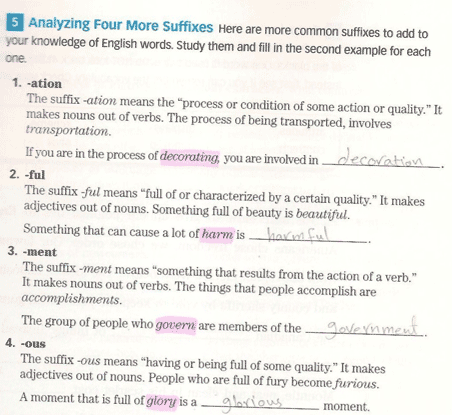 5 Analyzing Four More Suffixes Here are more common suffixes to add to
your knowledge of English words. Study them and fill in the second example for each
one.
1. -ation
The suffix -ation means the “process or condition of some action or quality.” It
makes nouns out of verbs. The process of being transported, involves
transportation.
If you are in the process of decorating, you are involved in decoration.
2. -ful
The suffix -ful means “full of or characterized by a certain quality.” It makes
adjectives out of nouns. Something full of beauty is beautiful.
Something that can cause a lot of harm is harmful.
3. -ment
The suffix -ment means “something that results from the action of a verb.”
It makes nouns out of verbs. The things that people accomplish are
accomplishments.
The group of people who govern are members of the government.
4. -ous
The suffix -ous means “having or being full of some quality.” It makes
adjectives out of nouns. People who are full of fury become furious.
A moment that is full of glory is a glorious moment.